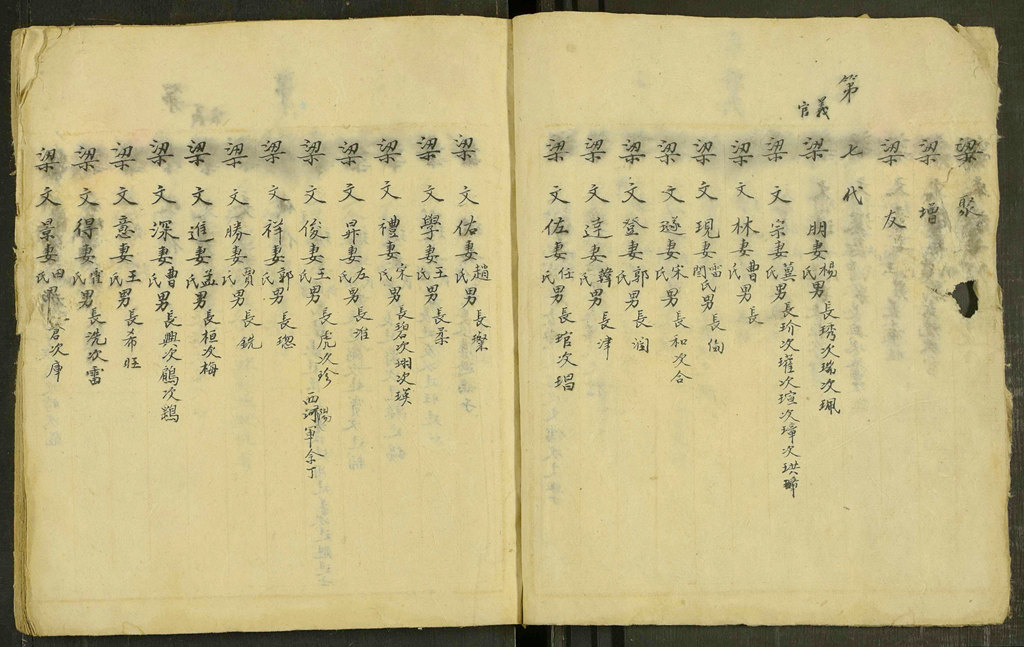 梁聚
梁增
梁友
第七代
官義
梁朋妻楊氏男長琇次瑞次珮
梁文宗妻氏男長玠次瓘次瑄次璋次珙
梁文林妻曹氏男長
梁文現妻雷氏閻氏男長侚
梁文遂妻宋氏男長和次合
梁文登妻郭氏男長潤
梁文達妻韓氏男長津
梁文佐妻任氏男長琯次琩
梁文佑妻趙氏男長璨
梁文學妻王氏男長柔
梁文禮妻宋氏男長碧次珝次瑛
梁文昇妻左氏男長淮
梁文俊妻王氏男長虎次珍西河陽軍余丁
梁文祥妻郭氏男長璁
梁文勝妻賈氏男長銑
梁文進妻孟氏男長桓次梅
梁文深妻曹氏男長典次鶴次鵾
梁文意妻王氏男長希旺
梁文得妻霍氏男長洗次雷
梁文景妻田氏男君次庫